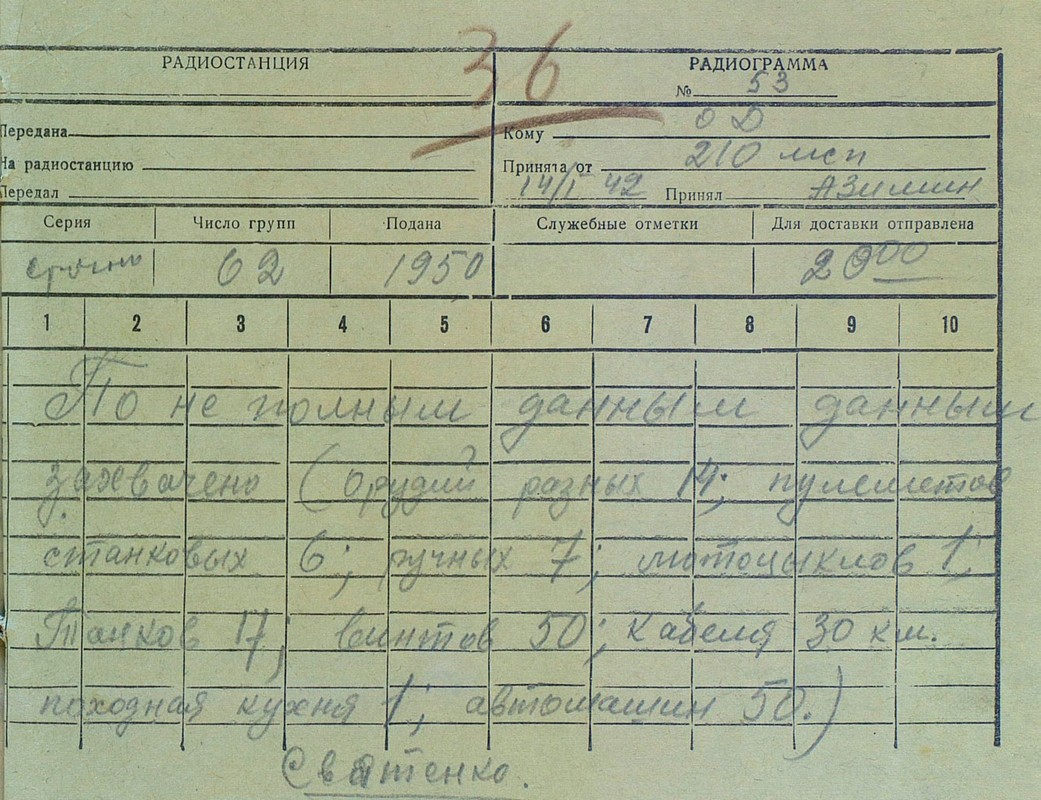 36
РАДИОСТАНЦИЯ
РАДИОГРАММА
№ 53
Передана
Кому ОД
На радиостанцию
Принята от 210 мсп
Передал
14/I 42 Принял Азимин
Серия Число групп Подана Служебные отметки Для доставки отправлена
срочно 62 1950 20 00
1 2 3 4 5 6 7 8 9 10
По не полным данным данным
захвачено (орудий разных 14; пулеметов
станковых 6; ручных 7; мотоциклов 1;
Танков 17; винтов 50; кабеля 30 км.
походная кухня 1; автомашин 50.)
Сватенко.